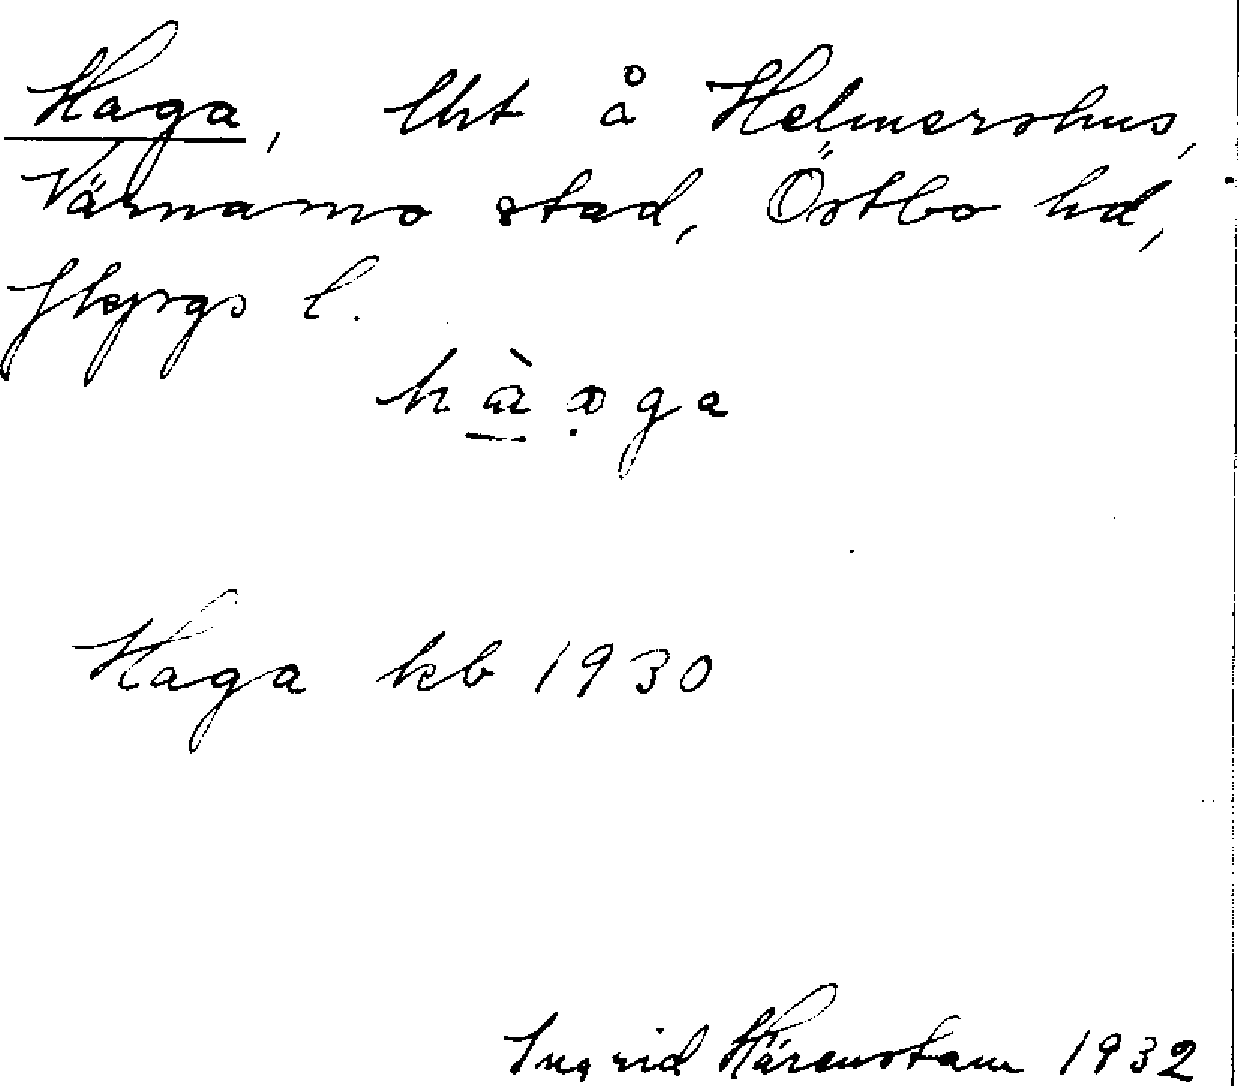 Haga, lht å Helmershus,
Värnamo stad, Östbo hd,
Jkpgs l.
Haga kb 1930
Ingrid Härenstam 1932